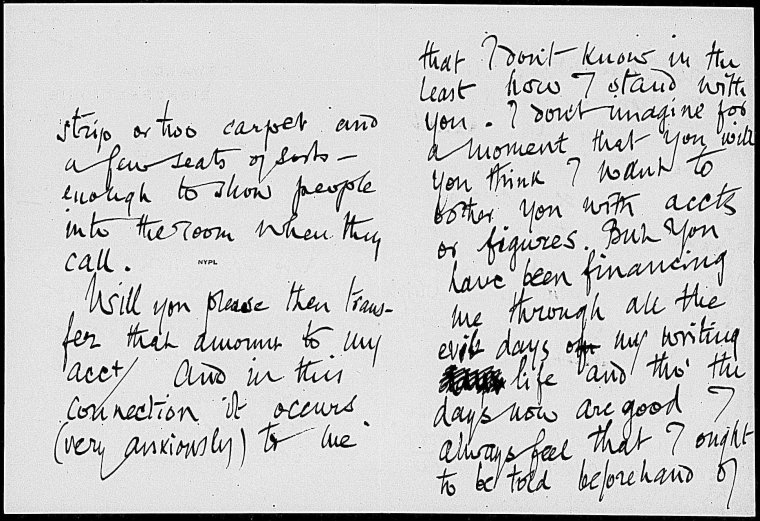 strip or two carpet and
a few seats of sorts –
enough to show people
into the room when they
call.
NYPL
Will you please then trans-
fer that amount to my
acct. And in this
connection it occurs
(very anxiously) to me
that I don't know in the
least how I stand with
you. I don't imagine for
a moment that you will
you think I want to
bother you with accts
or figures. But you
have been financing
me through all the
evil days of my writing
life and tho' the
days now are good I
always feel that I ought
to be told beforehand of